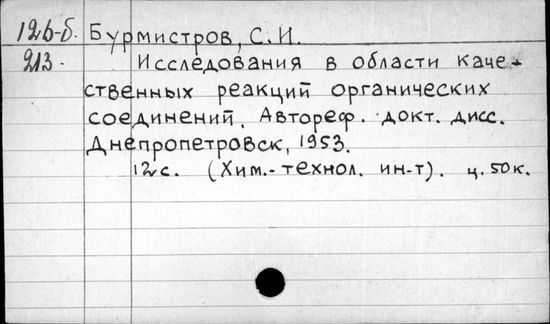 12б-б. Бурмистров, С.И.
213. Исследования в области каче-
ственных реакций органических
соединений. Автореф. докт. дисс.
Днепропетровск, 1953.
12с. (Хим.-технол. ин-т). ц. 50к.